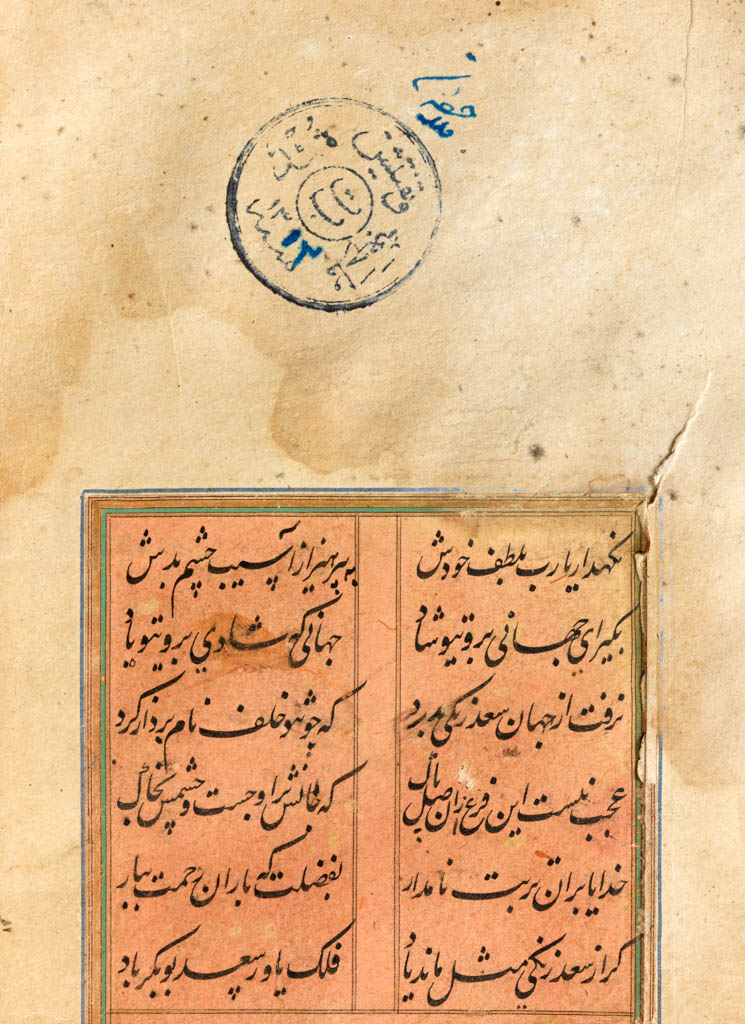 تفتیش شد
نکهدار یارب بلطف خودش به پرهیز از آسیب چشم بدش
بکیر ای جهانی بروی تو شاد جهانی که شادی بروی تو باد
نرفت از جهان سعد زنکی بدرد که چون تو خلف نام بردار کرد
عجب نیست این فرع ازان اصل پاک که جانش بر اوجست و جسمش بخاک
خدایا بران تربت نامدار بفضلت که باران رحمت ببار
کر از سعد زنکی مثل ماند یاد فلک یاور سعد بوبکر باد